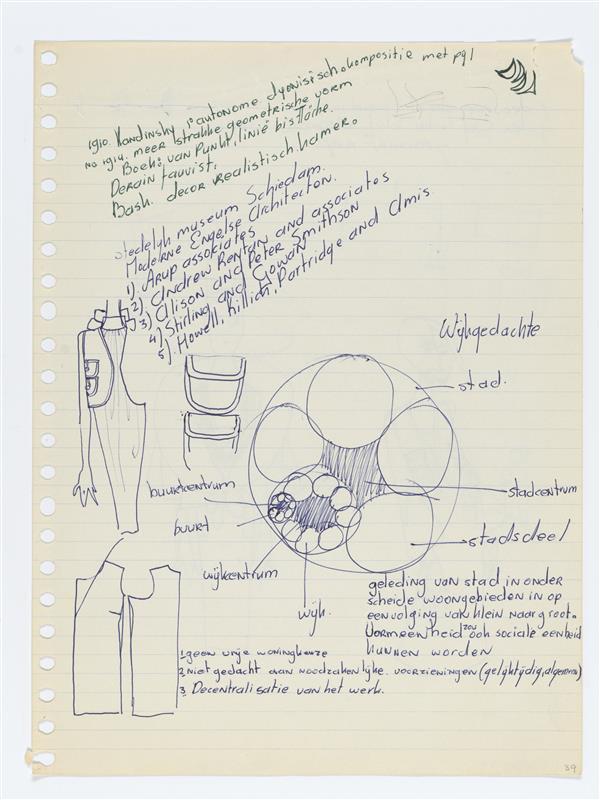 1910. Kandinsky 1e autonome dyonisische kompositie met pql
na 1914. meer strakke geometrische vorm
Boek: van Punkt, linie bis fläche.
Derain fauvist.
Bash. decor realistisch kamer.
stedelyk museum Schiedam.
Moderne Engelse Architecten.
1) Arup associates
2) Andrew Renton and associates
3) Alison and Peter Smithson
4) Stirling and Gowan
5) Howell, Killich, Partridge and Amis
Wijkgedachte
stad.
stadcentrum
stadsdeel
buurtcentrum
buurt
wijkcentrum
wijk.
geleding van stad in onder
scheide woongebieden in op
eenvolging van klein naar groot.
Vormeenheid zou ook sociale eenheid
kunnen worden
1 geen vrije woningkeuze
2 niet gedacht aan noodzakenlijke voorzieningen (gelijktijdig, algemeen)
3 Decentralisatie van het werk.
39